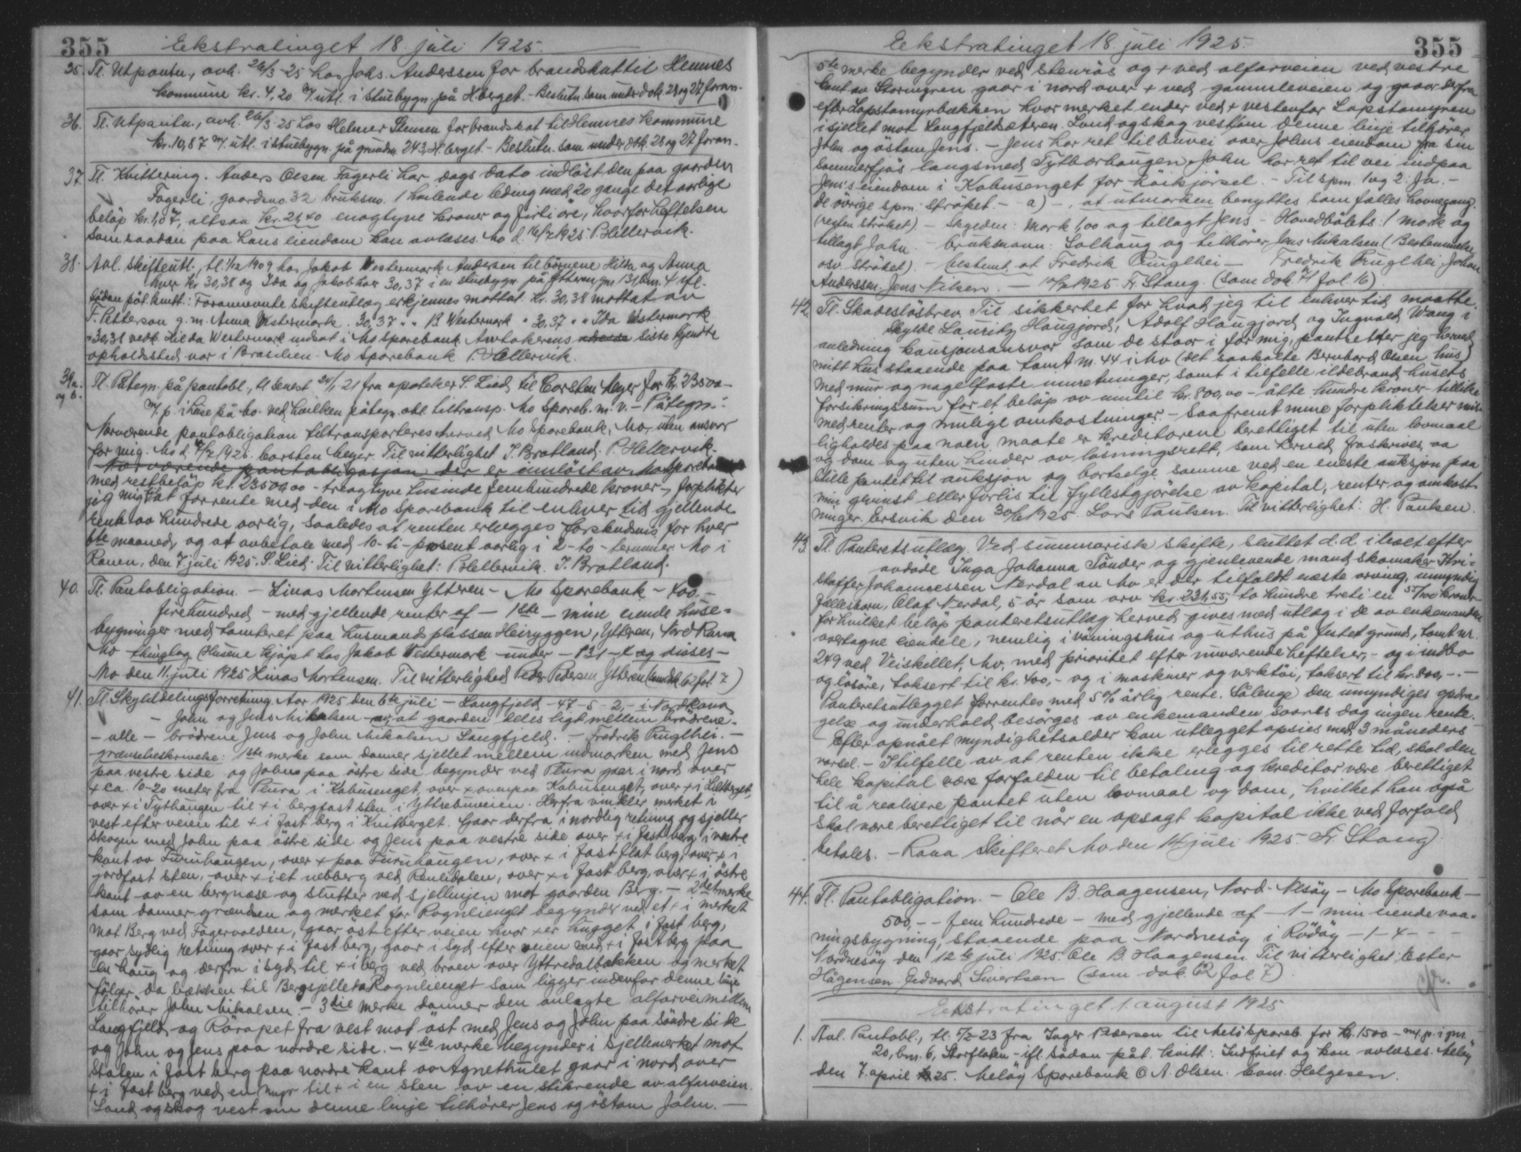 355 Ekstratinget 18 juli 1925.
35. Tl. Utpantn., avh. 26/3-25 hos Johs. Anderssen for brandskat til Hemnes
kommune kr. 4,20 m/ utl. i stuebygn. på Hberget. - Beslutn. som under dok 28 og 27 foran.
36. Tl. Utpantn., avh. 26/3 25 hos Helmer Stensen for brandskat til Hemnes kommune
kr. 10,87 m/ utl. i stuebygn. på grunden 243 Hberget - Beslutn. som under dok 28 og 27 foran.
37. Tl. Kvittering. Anders Olsen Fagerli har dags dato indlöst den paa gaarden
Fagerli, gaardsno. 32 bruksno. 1 heilende leding med 20 gange det aarlige
belöp kr. 1,07, altsaa kr. 21,40 enogtyve kroner og firti öre, hvorfor heftelsen
som saadan paa hans eiendom kan avlæses. Mo d. 16/7 1925 P. Hellervik.
38. Avl. skifteutl., tl. 1/12 1909 hos Jakob Westermark Andersen til börnene Hilda og Anna
hver kr 30,38 og Ida og Jakob hver 30,37 i en stuebygn. på Ytteren
sådan påt. kvitt: Foranævnte skifteutlæg erkjennes mottat kr. 30,38 mottat av
F. Petterson g. m. Anna Westermark. 30,37 " " B Westermark " 30,37 " " Ida Westermark
" 30,38 vedk. Hilda Westermark indsat i Mo Sparebank. Arvtakerens siste kjendte
opholdssted var i Brasilien. Mo Sparebank P. Hellervik.
39 a. og b. Tl. Påtegn. på pantobl., tl. senest 21 fra apoteker S. Lied til Carsten Meyer for kr. 23500 -
m/ p. i huse på Mo. ved hvilken påtegn. obl. tiltransp. Mo Spareb. m. v. - Påtegn:
Nærværende pantobligation tiltransporteres herved Mo Sparebank, Mo, uten ansvar
for mig. Mo d. 4/7 1925. Carsten Meyer. Til vitterlighet J. Bratland. P. Hellervik.
Nærværende pantobligasjon der er innlöst av Mo Sparebank
med restbelöp kr. 23500,00 - treogtyve tusinde femhundrede kroner - forplikter
jeg mig at forrente med den i Mo Sparebank til enhver tid gjellende
rente av hundrede aarlig, saaledes at renten erlægges forskudsvis for hver
6te maaned, og at avbetale med 10 - ti - prosent aarlig i 2 - to - terminer. Mo i
Ranen, den 7 juli 1925. S. Lied. Til vitterlighet: P. Hellervik. J. Bratland.
40. Tl. Pantobligation. - Linas Mortensen Ytteren - Mo Sparebank - 400 -
firehundred - med gjellende renter af - 1ste - mine eiende huse-
bygninger med tomteret paa husmandsplassen Heiryggen, Ytteren, Nord Rana
Mo - tinglag (Husene kjöpt hos Jakob Westermark - under -
Mo den 11. juli 1925 Linas Mortensen. Til vitterlighed Peder Pedersen Ytteren (som dok 62 fol 7)
41. Tl. Skyldelingsforretning. Aar 1925 den 6te juli - Langfjeld - 47 - 5 - 2, - i Nordrana
- John og Jens Nikolsen - at gaarden deles ligt mellem brödrene. -
- alle - brödrene Jens og John Nikolsen Langfjeld. - Fredrik Ringlhei. -
grænsebeskrivelse: 1ste merke som danner sjellet mellem indmarken med Jens
paa vestre side og Johns paa östre side begynder ved Plura gaar i nord over
+ ca. 10-20 meter fra Plura i Kobusenget, over + ovenpaa Kobusenget, over + i Lilleberget,
over + i Tythaugen til + i bergfast sten i Yttrebumeien. Herfra vinkler merket i
vest efter veien til + i fast berg i Knitberget. Gaar derfra i nordlig retning og sjeller
skogen med John paa östre side og Jens paa vestre side over + i fast berg i vestre
kant av Furuhaugen, over + paa Furuhaugen, over + i fast flat berg, over + i
jordfast sten, over + i et nebberg ved Rentidalen, over + i fast berg, over + i östre
kant av en bergnase og slutter ved sjellinjen mot gaarden Berg. - 2det merke
som danner grændsen og merket for Rognlienget begynder ved et + i merket
mot Berg ved Fagervolden, gaar öst efter veien hvor + er hugget i fast berg,
gaar sydlig retning over + i fast berg, gaar i syd efter veien med + i fast berg paa
en haug og derfra i syd til + i berg ved broen over Yttredalbækken og merket
fölger da bækken til Bergsjellet. Rognlienget som ligger indenfor denne linje
tilhörer John Nikolsen. - 3die merke danner den anlagte alfarvei mellem
Langfjeld og Rörapet fra vest mot öst med Jens og John paa söndre side
og John og Jens paa nordre side. - 4de merke begynder i sjellmerket mot
Stolen i fast berg paa nordre kant av Agnethulet gaar i nord over
+ i fast berg ved en myr til + i en sten av en stikrende av alfarveien.
Land og skog vest om denne linje tilhörer Jens og östom John. -
Ekstratinget 18 juli 1925 355
5te merke begynder ved stenrös og + ved alfarveien ved vestre
kant av Stormyren gaar i nord over + ved gammelveien og gaar derfra
efter Lapstamyrbakken hvor merket ender ved + vestenfor Lapestamyren
i sjellet mot Langfjeldsæteren. Land og skog vestom denne linje tilhörer
John og östom Jens. - Jens har ret til buvei over Johns eiendom fra sin
sommerfjös langsmed Tytbærhaugen. John har ret til vei indpaa
Jens's eiendom i Kobusenget for höikjörsel. - Til spm. 1 og 2: Ja. -
de övrige spm. ströket - a) -, at utmarken benyttes som fælles havnegang
(resten ströket) - Skylden: Mark 1,00 og tillagt Jens - Hovedbölets: 1 mark og
tillagt John. - bruksnavn: Solhaug og tilhörer Jens Nikolsen (Bestemmelse
osv ströket). - bestemt at Fredrik Ringlhei - Fredrik Ringlhei Johan
Anderssen, Jens Nilsen. - 14/7 1925. Fr. Stang. (Som dok 71 fol 16)
42. Tl. Skadeslösbrev. Til sikkerhet for hvad jeg til enhver tid maatte
skylde Lauritz Haugjord, Adolf Haugjord og Ingvald Wang i
anledning kausjonsansvar som de staar i for mig, pantsetter jeg herved
mitt hus staaende paa tomt m. 44 i Mo (det saakalte Bernhard Olsen hus)
med mur og nagelfaste innretninger, samt i tilfelle ildebrand husets
forsikringssum for et beløp av inntil kr. 800,00 - åtte hundre kroner tillike
med renter og mulige omkostninger. - Saafremt mine forpliktelser mis-
ligholdes paa noen maate er kreditorene berettiget til uten lovmaal
og dom og uten hinder av løsningsrett, som derved fraskrives, aa
stille pantet til auksjon og bortselge samme ved en eneste auksjon paa
min gevinst eller forlis til fyllestgjörelse av kapital, renter og omkost-
ninger. Ersvik den 30/6 1925 Lars Paulsen. Til vitterlighet: H. Paulsen.
43. Tl. Panteretsutlæg. Ved summarisk skifte, sluttet d.d. i boet efter
avdøde Inga Johanna Sönder og gjenlevende mand skomaker Kri-
stoffer Johannessen Nerdal av Mo er der tilfaldt næste arving, umyndig
fellesbarn, Olaf Nerdal, 5 år som arv kr. 231,55, to hundre treti en 55/100 kroner
for hvilket belöp panteretsutlæg herved gives med utlæg i de av enkemanden
overtagne eiendele, nemlig i våningshus og uthus på festet grund, tomt nr.
249 ved Veiskillet, Mo, med prioritet efter nuværende heftelser, - og i indbo
og lösöre, taksert til kr. 400, - og i maskiner og verktöi, taksert til kr. 200, - . -
Panteretsutlegget forrentes med 5% årlig rente. Sålenge den umyndiges opdra-
gelse og underhold besørges av enkemanden svares dog ingen rente.
Efter opnået myndighetsalder kan utlegget opsies med 3 måneders
varsel. - I tilfelle av at renten ikke erlegges til rette tid, skal den
hele kapital være forfalden til betaling og kreditor være berettiget
til å realisere pantet uten lovmaal og dom, hvilket han også
skal være berettiget til når en opsagt kapital ikke ved forfald
betales. - Rana Skifteret Mo den 14 juli 1925. Fr. Stang
44. Tl. Pantobligation. - Ole B. Haagensen, Nord-Nesöy - Mo Sparebank -
500, - - fem hundrede - med gjellende af - 1 - min eiende vaa-
ningsbygning, staaende paa Nordnesöy i Rödöy - 1 - 4 - - -
Nordnesöy den 12te juli 1925. Ole B. Haagensen Til vitterlighet: Lester
Hågensen. Edvard Sivertsen (som dok 62 fol 7).
Ekstratinget 1 august 1925
1. Avl. Pantobl., tl. 23 fra Inger Petersen til Melöy Spareb. for kr. 1500 - m/ p. i gnr
20, bnr. 6, - ifl. sådan påt. kvitt: Indfriet og kan avlæses. Melöy
den 7. april 1925. Melöy Sparebank O. A. Olsen. Edm. Helgesen.